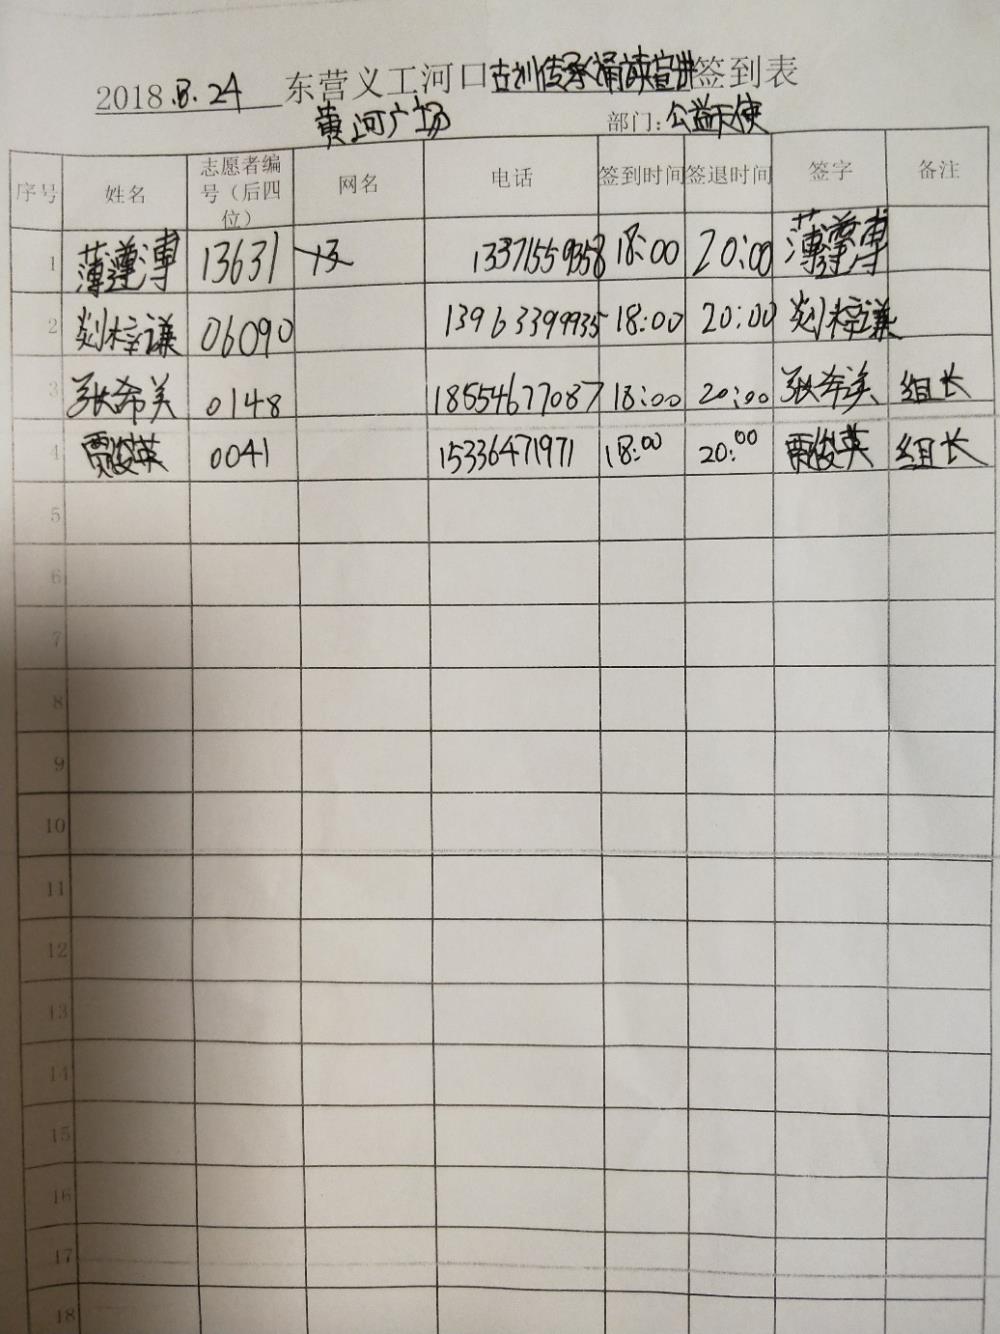 2018.8.24 东营义工河口古训传承诵读宣讲签到表
黄河广场 部门：公益天使
序号 姓名 志愿者编号（后四位） 网名 电话 签到时间 签退时间 签字 备注
1 薄遵溥 13631 13371559358 18:00 20:00 薄遵溥
2 梓谦 06090 13963399935 18:00 20:00 梓谦
3 张希美 0148 18554677087 18:00 20:00 张希美 组长
4 贾俊英 0041 15336471971 18:00 20:00 贾俊英 组长
5
6
7
8
9
10
11
12
13
14
15
16
17
18